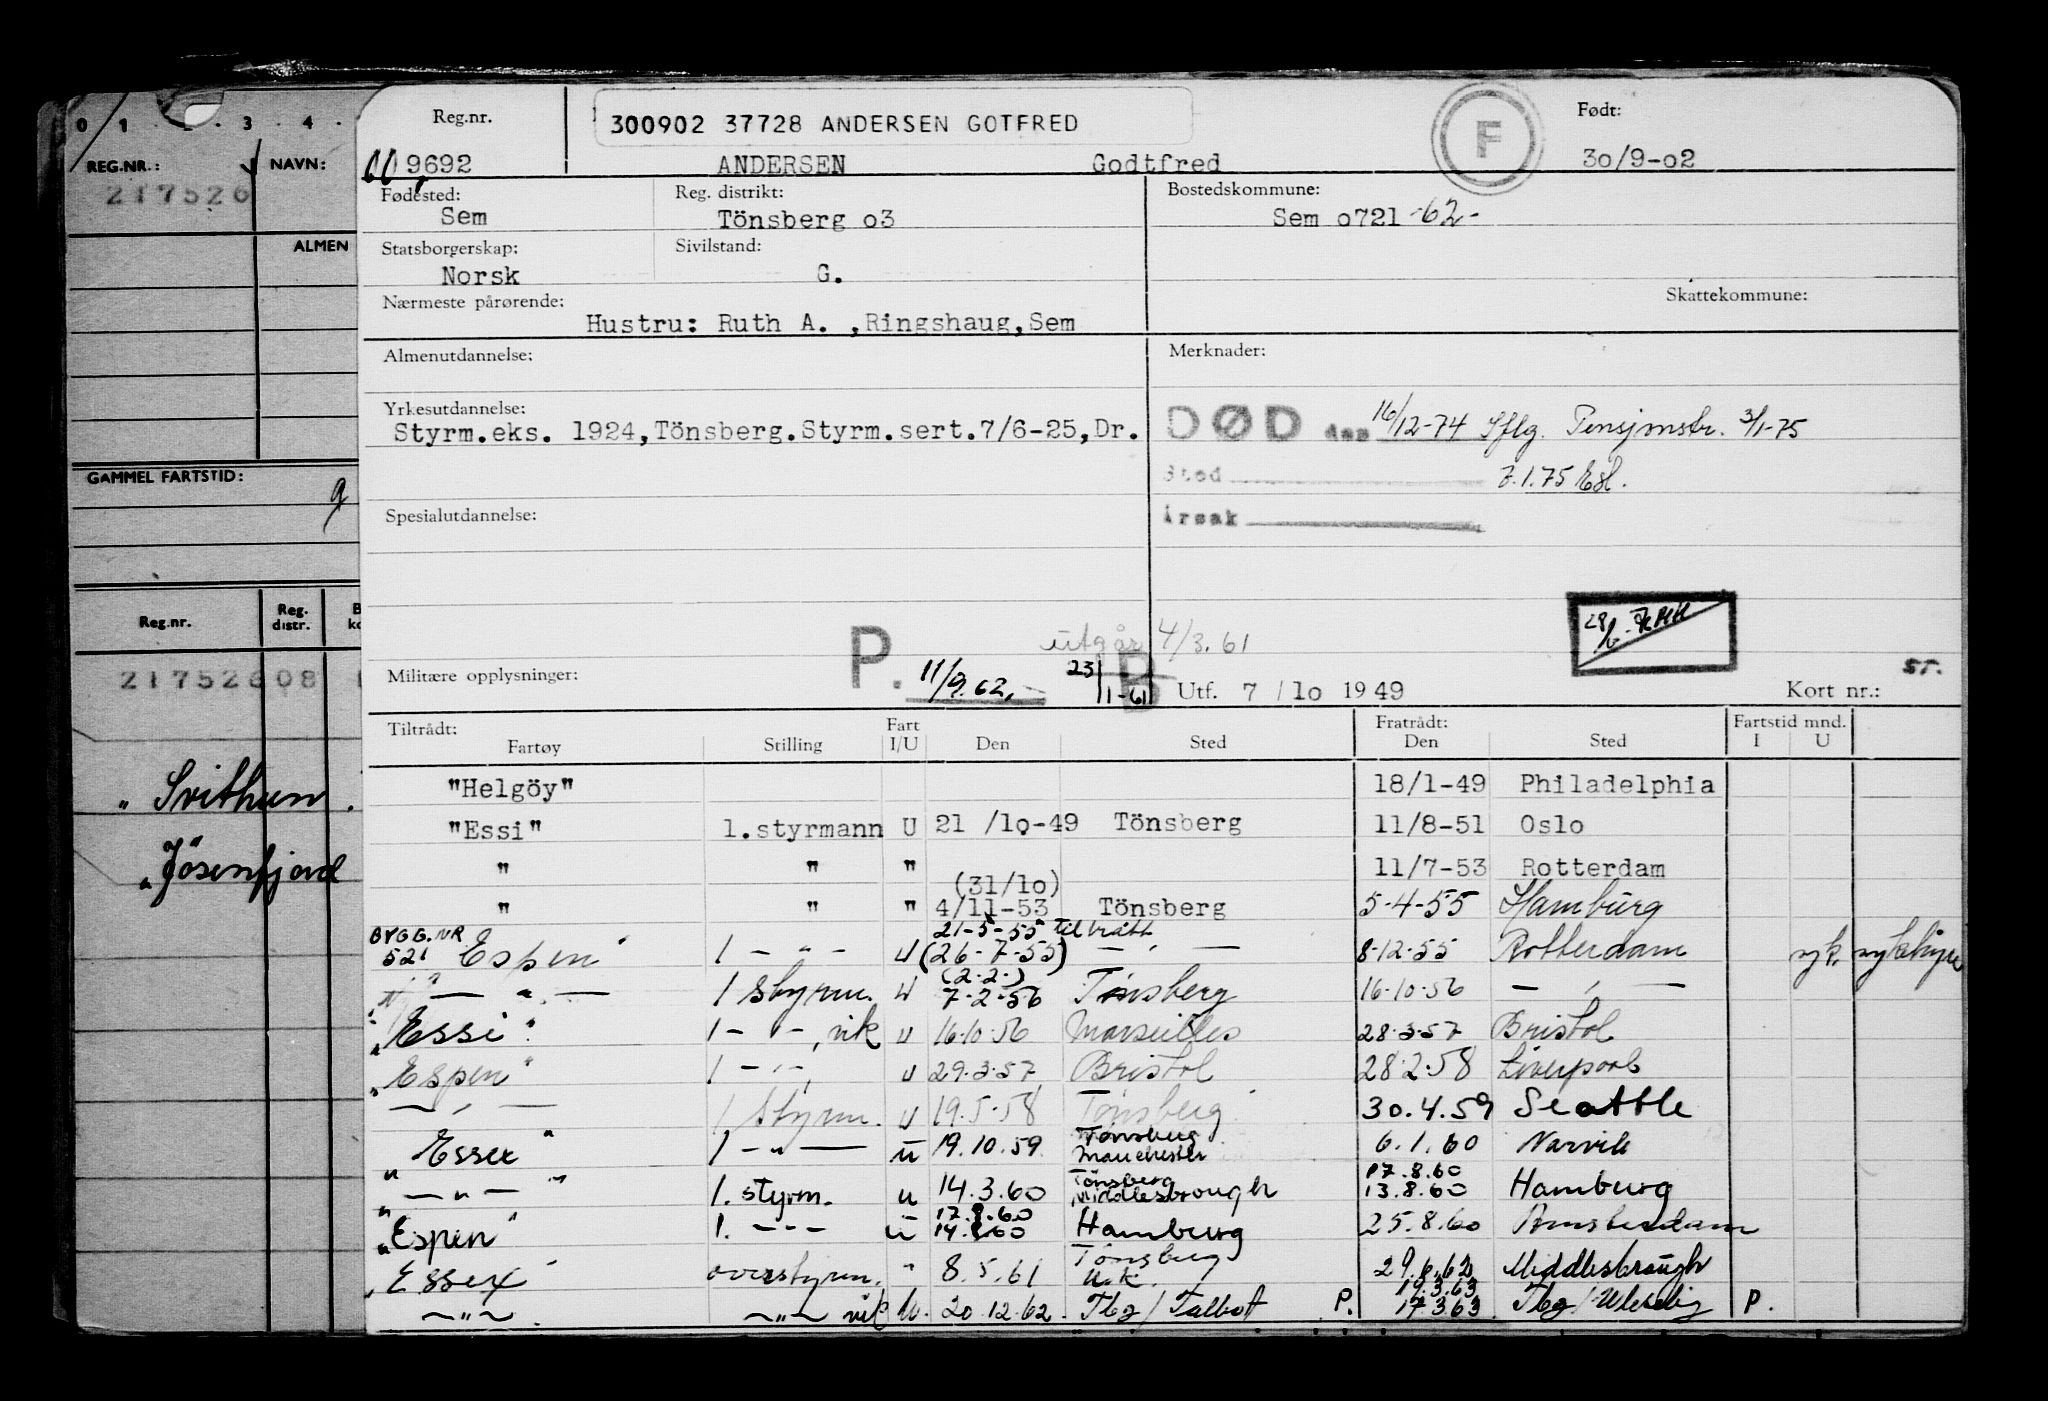 0 1 2 3 4
REG.NR.: NAVN:
217526
ALMEN
GAMMEL FARTSTID:
Reg.nr. Reg. distr.
21752608
"Svithun
"Jösenfjord
Reg.nr. 300902 37728 ANDERSEN GOTFRED F Født:
9692 ANDERSEN Godtfred 30/9-02
Fødested: Reg. distrikt: Bostedskommune:
Sem Tönsberg o3 Sem o721 -62-
Statsborgerskap: Sivilstand:
Norsk G.
Nærmeste pårørende: Skattekommune:
Hustru: Ruth A. ,Ringshaug,Sem
Almenutdannelse: Merknader:
Yrkesutdannelse:
Styrm.eks. 1924,Tönsberg.Styrm.sert.7/6-25,Dr. DØD den 16/12-74 Iflg. Pensjonstr. 3/1-75
Sted 7.1.75
Spesialutdannelse: Årsak
utgår 4/3.61
Militære opplysninger: P. 11/9.62. 23/1-61 B Utf. 7 / 10 1949 Kort nr.:
Tiltrådt: Fart Fratrådt: Fartstid mnd.
Fartøy Stilling I/U Den Sted Den Sted I U
"Helgöy" 18/1-49 Philadelphia
"Essi" 1.styrmann U 21 /10-49 Tönsberg 11/8-51 Oslo
" " " 11/7-53 Rotterdam
(31/10)
" " " 4/11-53 Tönsberg 5-4-55 Hamburg
BYGG.NR 21-5-55 tiltrått
521 Espen" 1 - " - U (26-7-55) - " - 8-12-55 Rotterdam syk.
(2.2.)
- " - 1 styrm. U 7-2-56 Tønsberg 16-10-56 - " -
"Essi" 1 - " -, vik U 16-10-56 Marseilles 28-3-57 Bristol
"Espen" 1 - " - U 29.3.57 Bristol 28.2.58 Liverpool
- " - 1 styrm. U 19.5.58 Tönsberg 30.4.59 Seattle
"Essex" 1 - " - U 19.10.59 Tönsberg Manchester 6.1.60 Narvik
17.8.60
" - " - " 1. styrm. U 14.3.60 Tönsberg Middlesbrough 13.8.60 Hamburg
17.8.60
"Espen" 1. - " - U 14.8.60 Hamburg 25.8.60 Amsterdam
"Essex" overstyrm. " 8.5.61 Tönsberg U.K. 29.6.62 Middlesbrough
19.3.63
- " - - " - vik U. 20.12.62 Tbg / Talbot P. 17.3.63 Tbg / P.